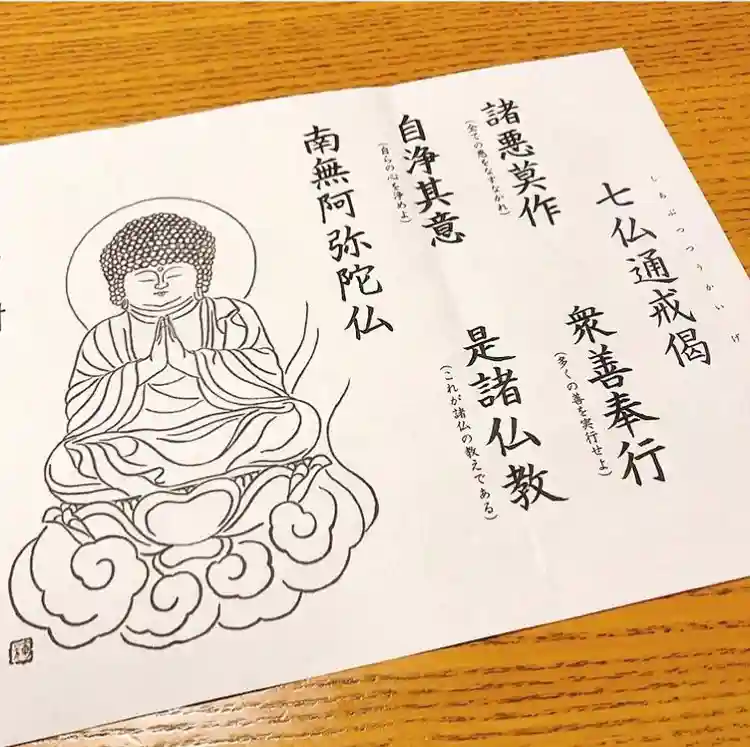 しちぶつつうかいげ
七仏通戒偈
諸悪莫作
(全ての悪をなすなかれ)
衆善奉行
(多くの善を実行せよ)
自浄其意
(自らの心を浄めよ)
是諸仏教
(これが諸仏の教えである)
南無阿弥陀仏